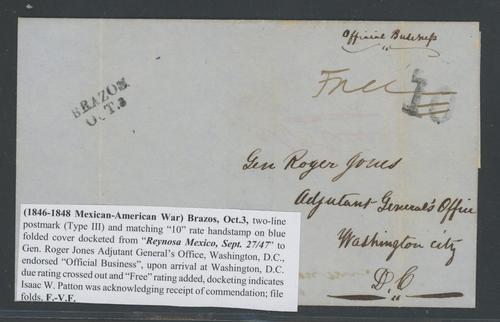 Official Buisness
Free
10
BRAZOS
OCT.3
Gen Roger Jones
Adjutant General's Office
Washington City
D.C
(1846-1848 Mexican-American War) Brazos, Oct.3, two-line
postmark (Type III) and matching “10” rate handstamp on blue
folded cover docketed from “Reynosa Mexico, Sept. 27/47” to
Gen. Roger Jones Adjutant General’s Office, Washington, D.C.,
endorsed “Official Business”, upon arrival at Washington, D.C.
due rating crossed out and “Free” rating added, docketing indicates
Isaac W. Patton was acknowledging receipt of commendation; file
folds. F.-V.F.